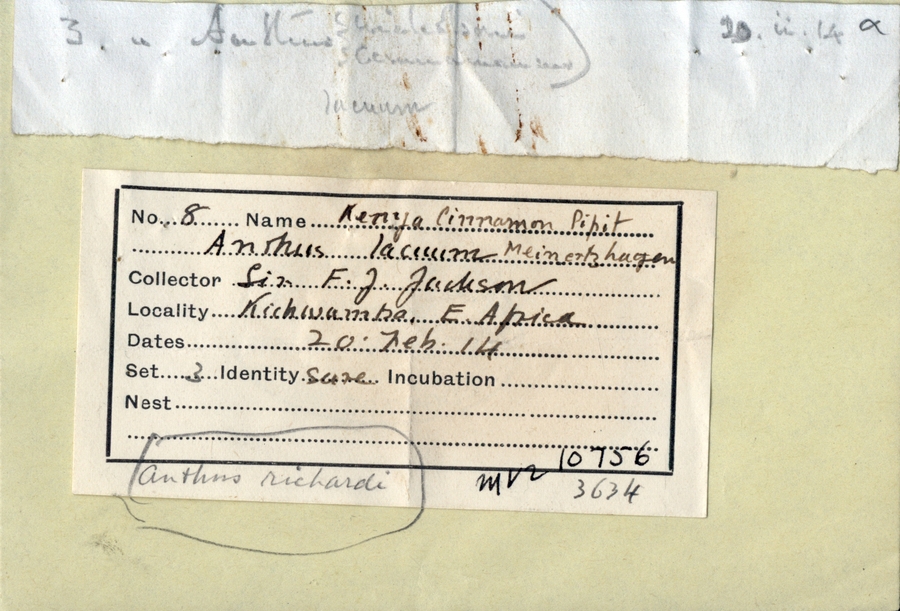 3. " Anthus 20. ii. 14 a
lacuum
No. 8 Name Kenya Cinnamon Pipit
Anthus lacuum Meinertzhagen
Collector Sir F. J. Jackson
Locality Kichwamba, E. Africa
Dates 20. Feb. 14
Set 3 Identity sure Incubation
Nest
10756
Anthus richardi MVZ 3634